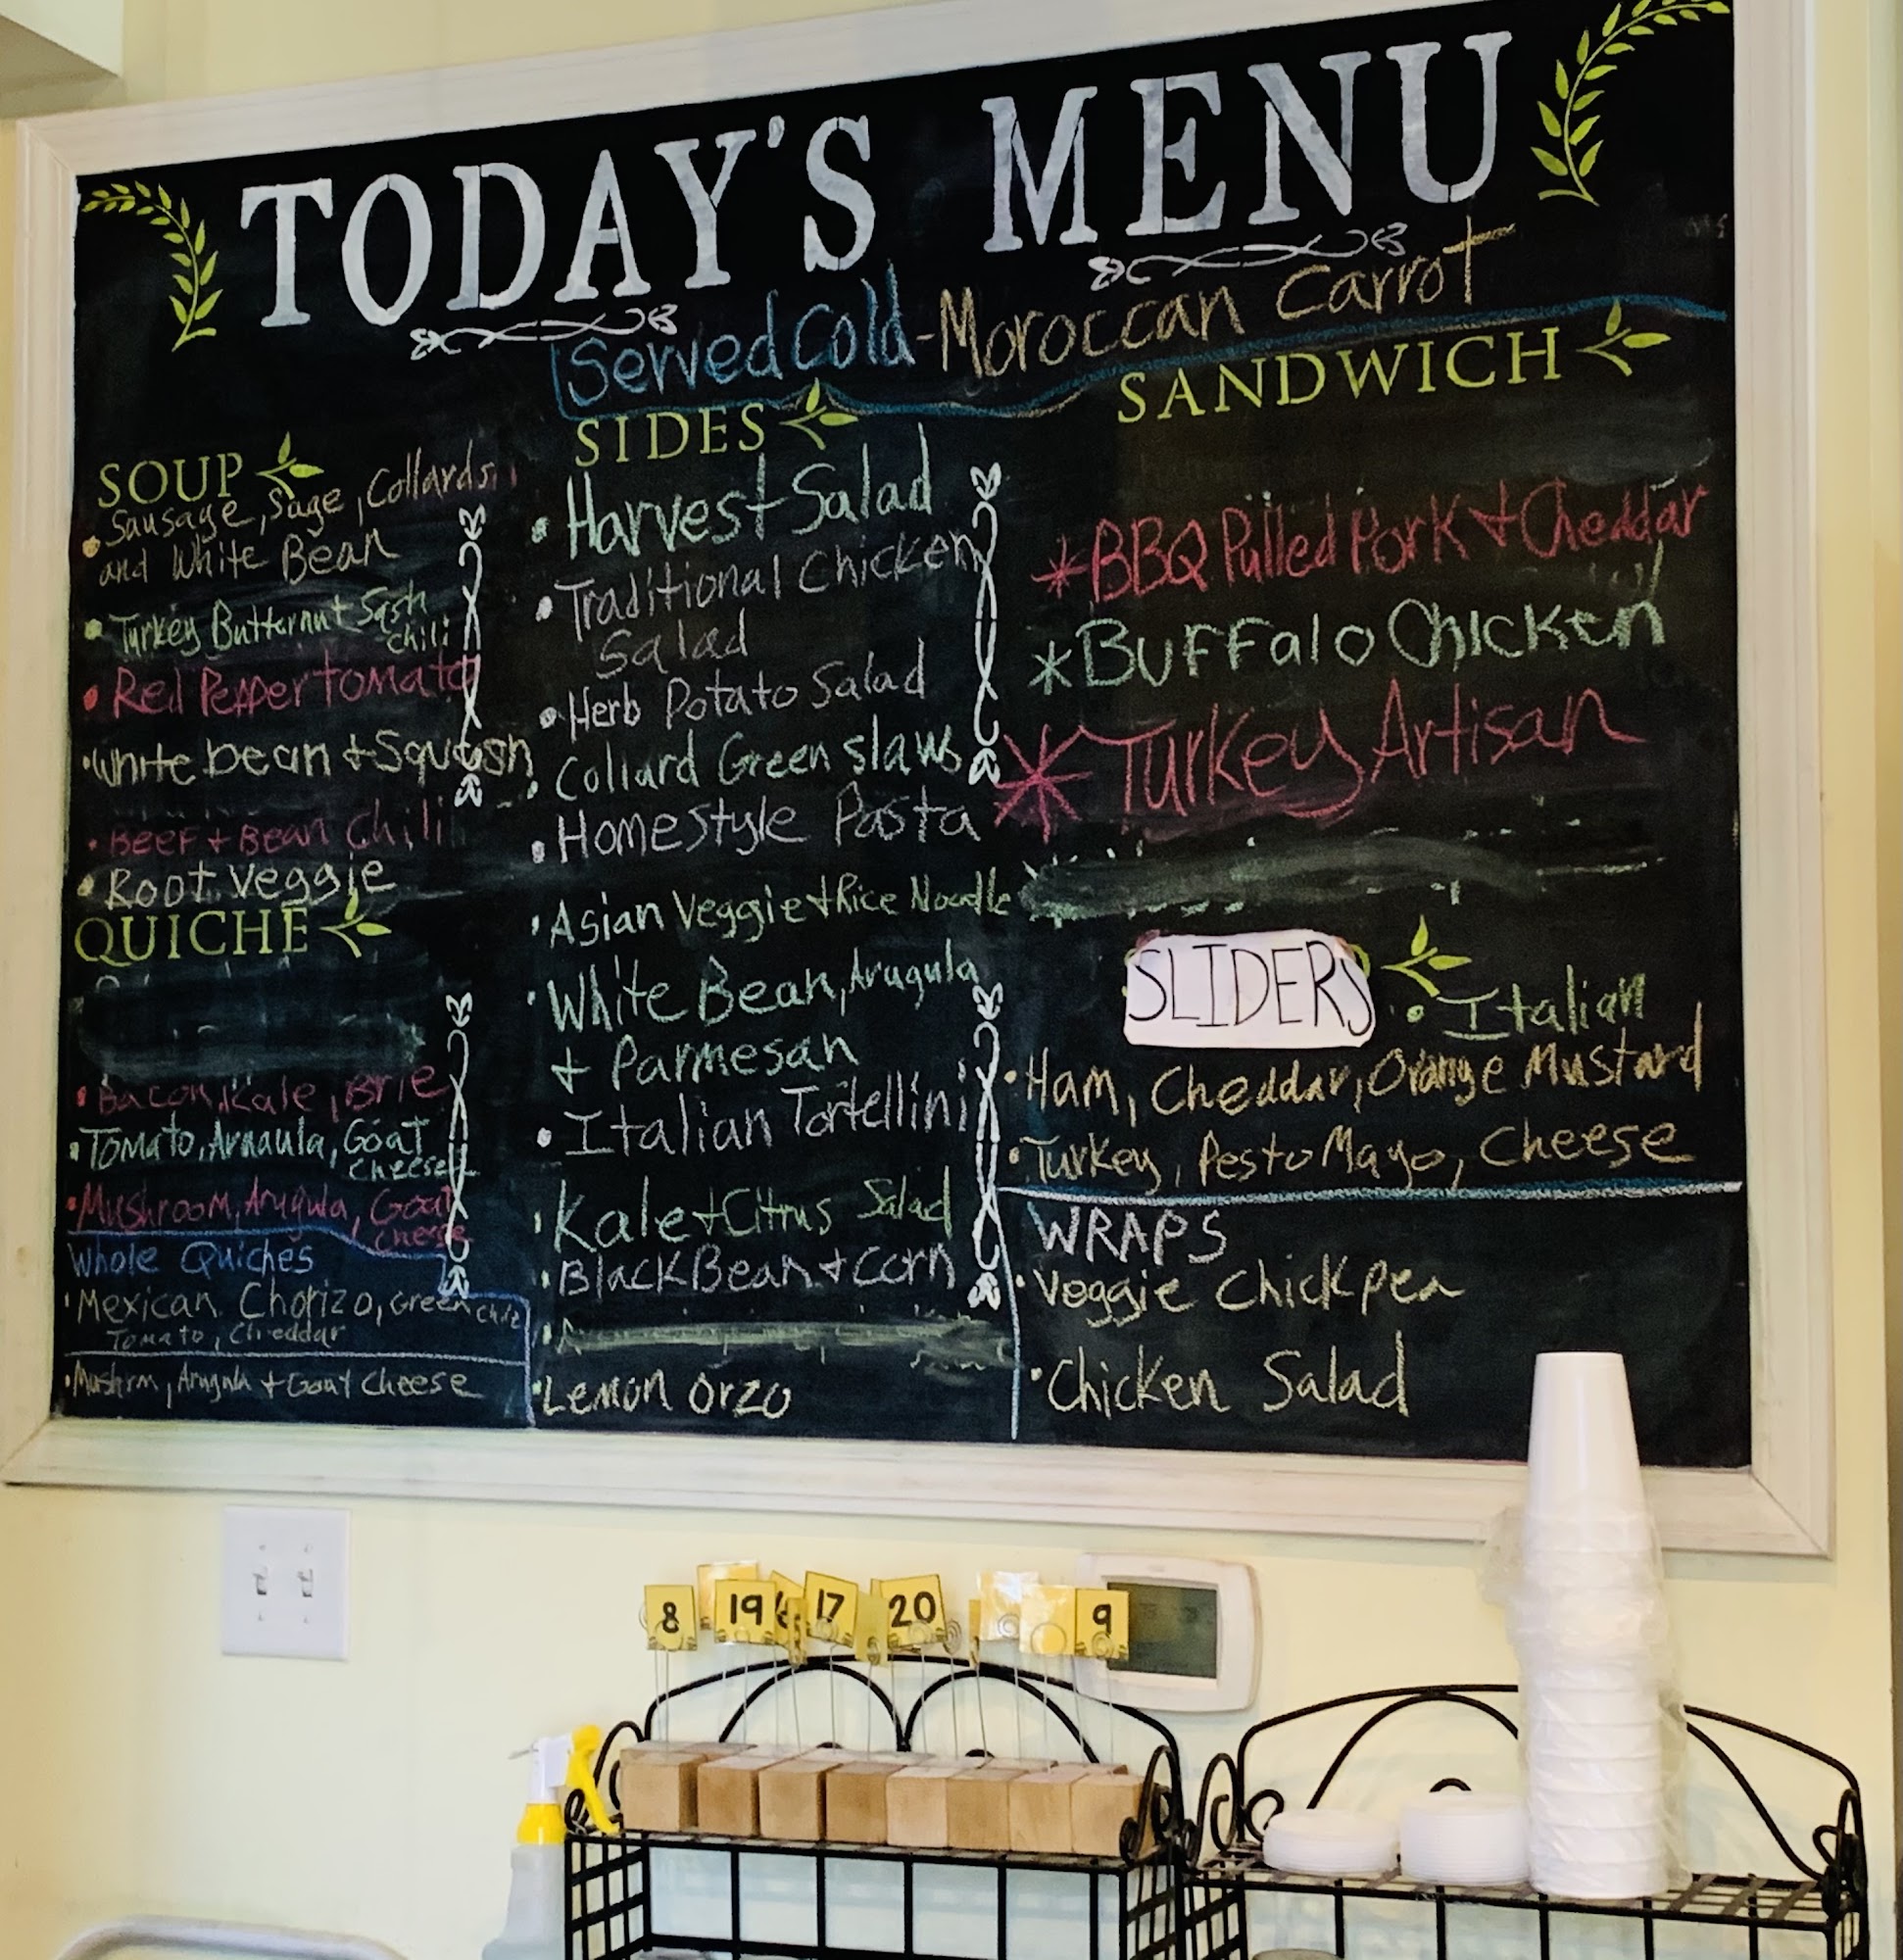 TODAY'S MENU
Served Cold - Moroccan Carrot
SOUP
• Sausage, Sage, Collards,
and White Bean
• Turkey Butternut Sqsh
chili
• Red Pepper tomato
• White bean + Squash
• Beef + Bean Chili
• Root Veggie
QUICHE
• Bacon, Kale, Brie
• Tomato, Arugula, Goat
cheese
• Mushroom, Arugula, Goat
cheese
Whole Quiches
• Mexican Chorizo, Green Chile
Tomato, Cheddar
• Mushrm, Arugula + Goat Cheese
SIDES
• Harvest Salad
• Traditional Chicken
Salad
• Herb Potato Salad
• Collard Green slaw
• Homestyle Pasta
• Asian Veggie + Rice Noodle
• White Bean, Arugula
+ Parmesan
• Italian Tortellini
• Kale + Citrus Salad
• Black Bean + Corn
• Lemon Orzo
SANDWICH
* BBQ Pulled Pork + Cheddar
* Buffalo Chicken
* Turkey Artisan
SLIDERS
• Italian
• Ham, Cheddar, Orange Mustard
• Turkey, Pesto Mayo, Cheese
WRAPS
• Veggie Chickpea
• Chicken Salad
8 19 17 20 9